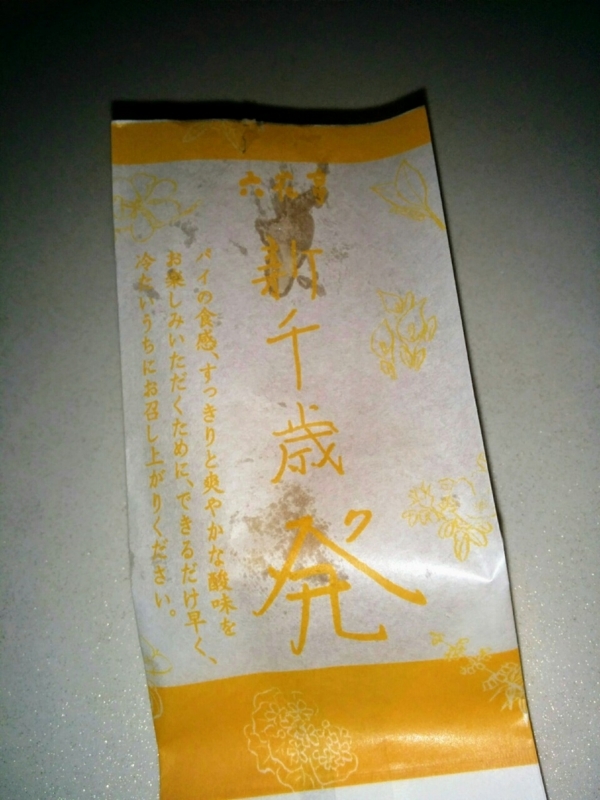 六花亭
新千歳発
パイの食感、すっきりと爽やかな酸味を
お楽しみいただくために、できるだけ早く、
冷たいうちにお召し上がりください。